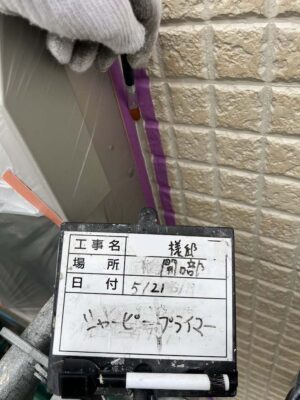 工事名 様邸
場所 開口部
日付 5/21
シャーピープライマー